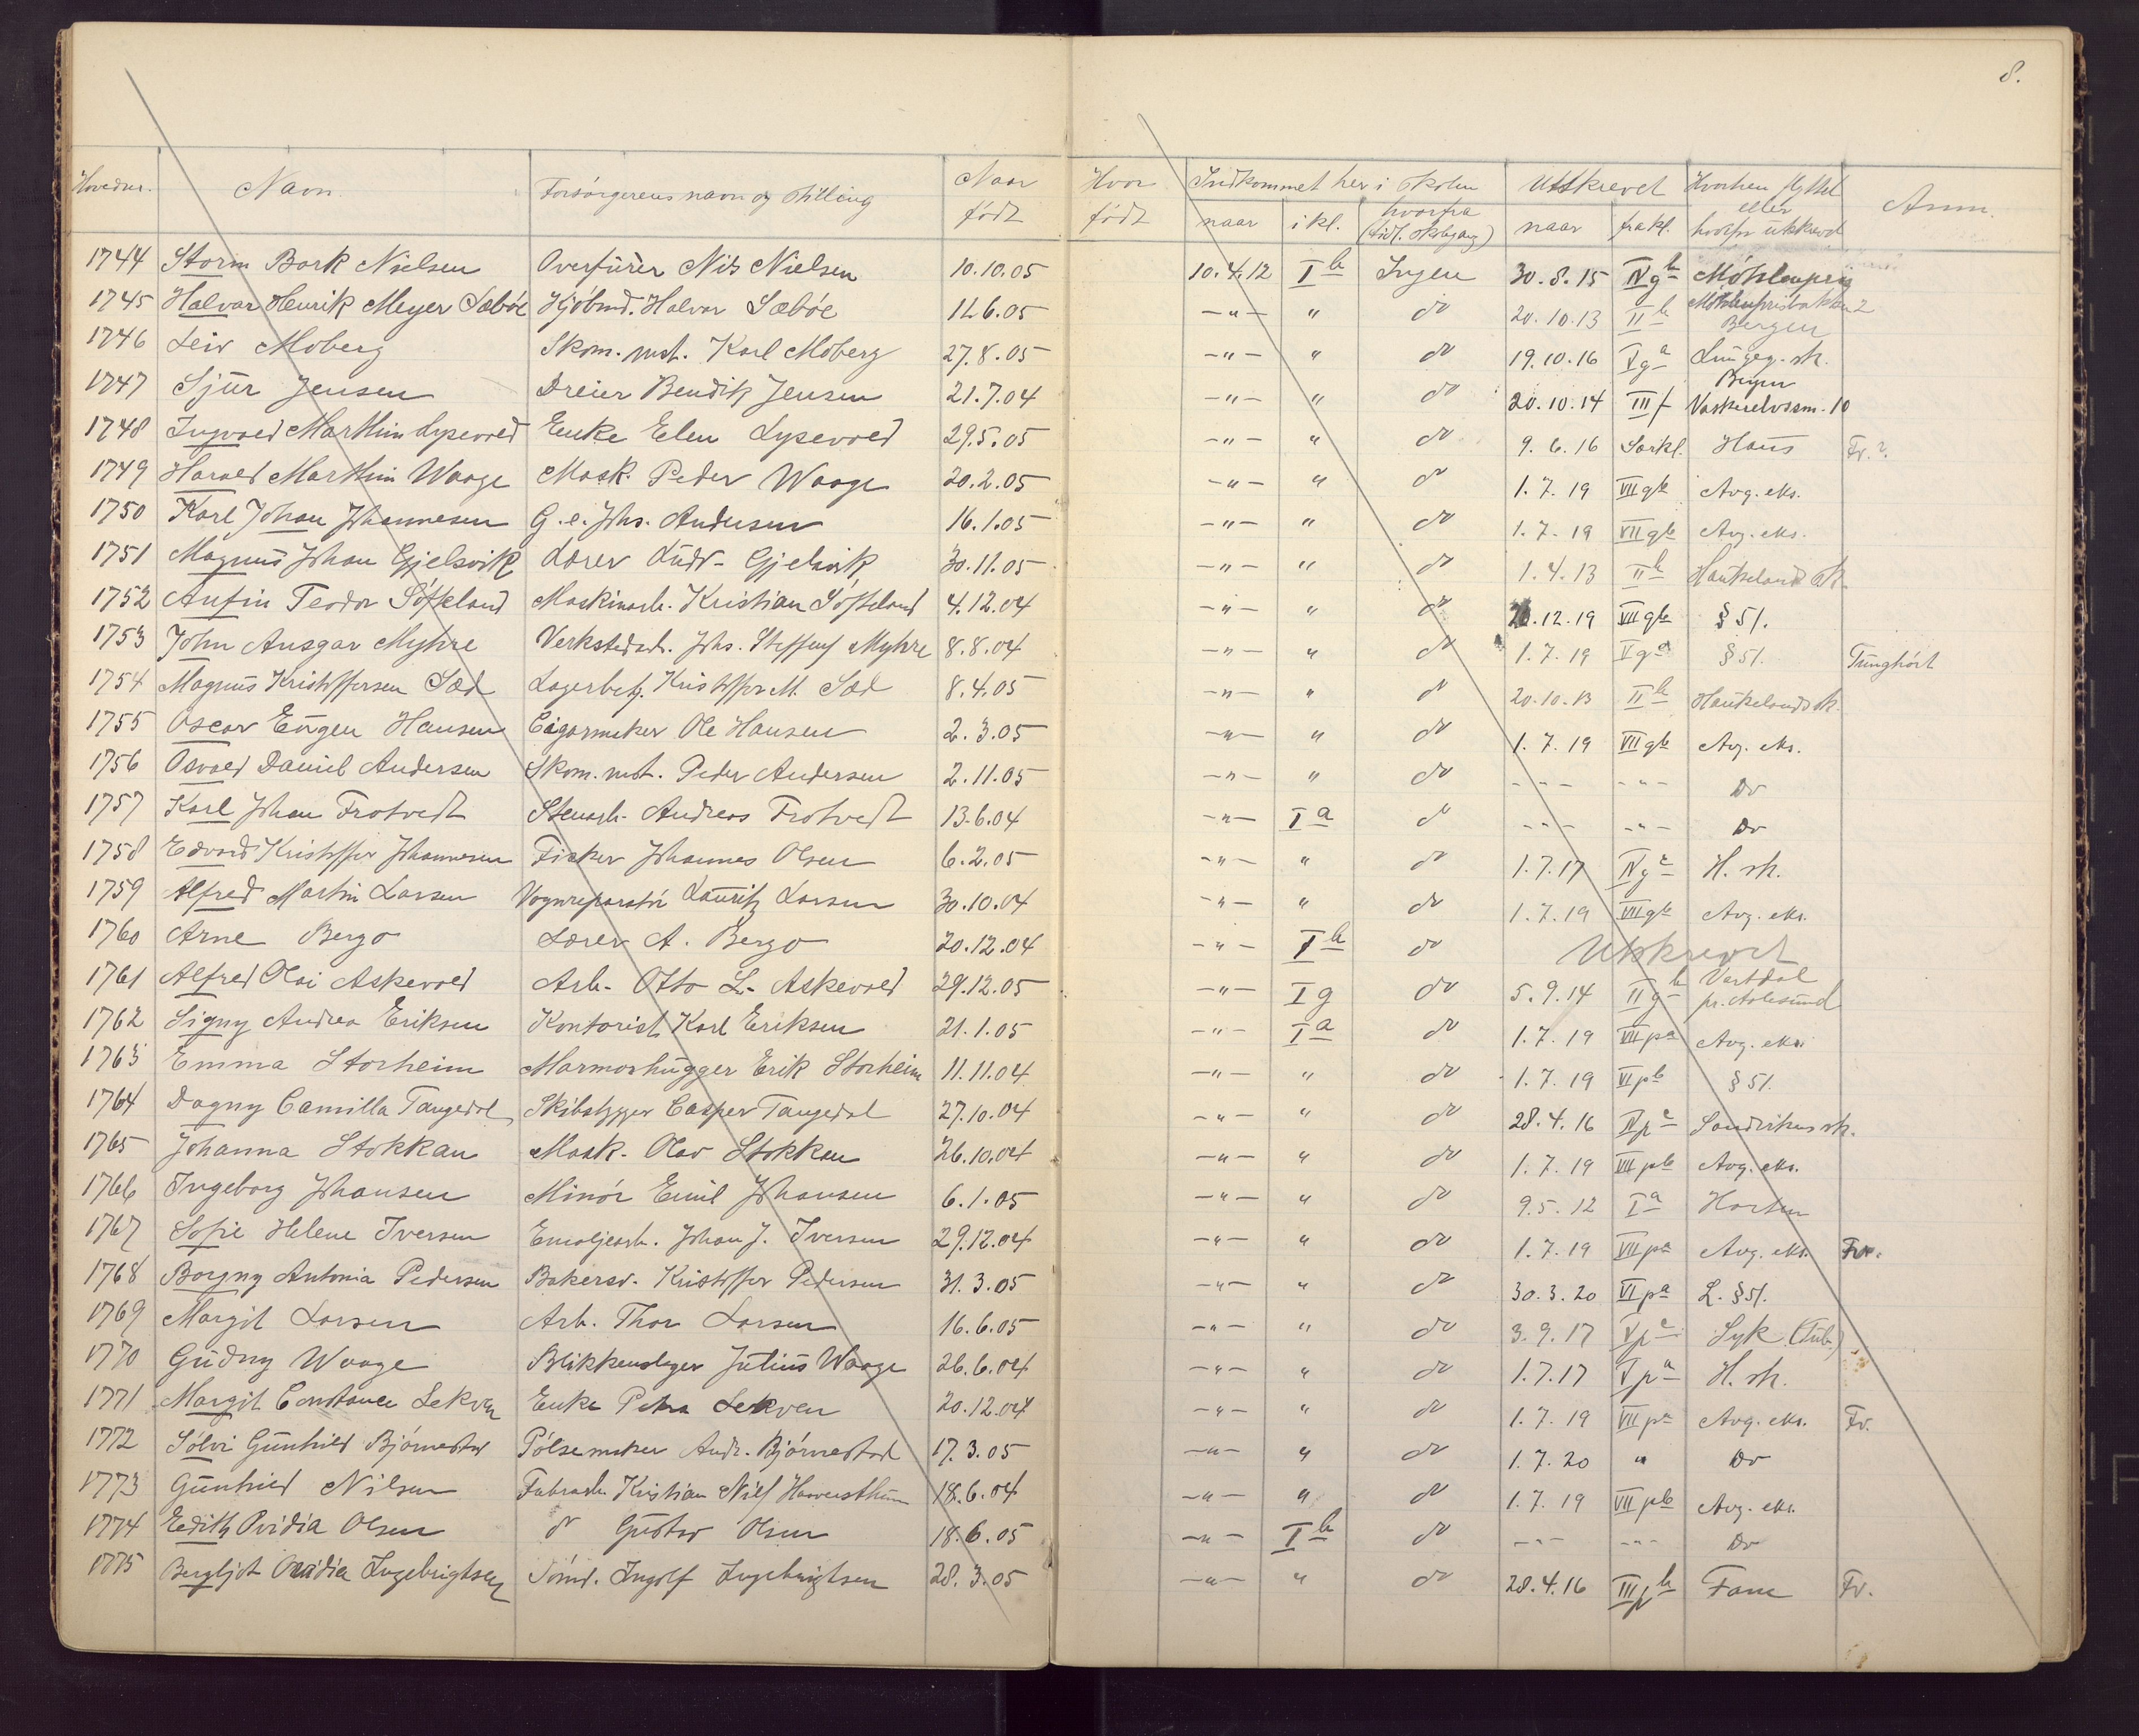 8.
Hovednr. Navn. Forsörgerens navn og stilling Naar födt Hvor födt Indkommet her i skolen Utskrevet Hvorhen flyttet eller hvorfor utskrevet Anm.
naar i kl. hvorfra (tidl. skolegang) naar fra kl.
1744 Storm Bark Nielsen Overfürer Nils Nielsen 10.10.05 10.4.12 I b Ingen 30.8.15 IV g b Möhlenpris
1745 Halvar Henrik Meyer Sæböe Kjöbmd. Halvor Sæböe 11.6.05 -"- " do 20.10.13 II b Möhlenprisbakken 2 Bergen
1746 Leiv Moberg Skom. mst. Karl Moberg 27.8.05 -"- " do 19.10.16 V g a Lungeg. sk. Bergen
1747 Sjur Jensen Dreier Bendik Jensen 21.7.04 -"- " do 20.10.14 III f Vaskerelvssm. 10
1748 Ingvald Marthin Lysevold Enke Elen Lysevold 29.5.05 -"- " do 9.6.16 Særkl. Haus Fv.?
1749 Harald Marthin Waage Mask. Peder Waage 20.2.05 -"- " do 1.7.19 VII gb Avg. eks.
1750 Karl Johan Johannesen G.e. Johs. Andersen 16.1.05 -"- " do 1.7.19 VII gb Avg. eks.
1751 Magnus Johan Gjelsvik Lærer Ludv. Gjelsvik 30.11.05 -"- " do 1.4.13 II b Haukeland sk.
1752 Anfin Teodor Söfteland Maskinarb. Kristian Söfteland 4.12.04 -"- " do 20.12.19 VII gb § 51.
1753 John Ansgar Myhre Verkstedarb. Johs. Steffens Myhre 8.8.04 -"- " do 1.7.19 V g a § 51. Tunghört
1754 Magnus Kristoffersen Sæd Lagerbetj. Kristoffer M. Sæd 8.4.05 -"- " do 20.10.13 II b Haukelands sk.
1755 Oscar Eugen Hansen Cigarmaker Ole Hansen 2.3.05 -"- " do 1.7.19 VII gb Avg. eks.
1756 Osvald Daniel Andersen Skom. mst. Peder Andersen 2.11.05 -"- " do - - - - " - Do
1757 Karl Johan Frotvedt Stenarb. Andreas Frotvedt 13.6.04 -"- I a do - " - - " - Do
1758 Edvard Kristoffer Johannesen Fisker Johannes Olsen 6.2.05 -"- " do 1.7.17 IV g a H. sk.
1759 Alfred Martin Larsen Vognreparatör Lauritz Larsen 30.10.04 -"- " do 1.7.19 VII gb Avg. eks.
1760 Arne Bergo Lærer A. Bergo 20.12.04 -"- I b do Utskrevet
1761 Alfred Olai Askevold Arb. Otto L. Askevold 29.12.05 -"- I g do 5.9.14 II g b Vartdal pr. Aalesund
1762 Signy Andrea Eriksen Kontorist Karl Eriksen 21.1.05 -"- I a do 1.7.19 VII pa Avg. eks.
1763 Emma Storheim Marmorhugger Erik Storheim 11.11.04 -"- " do 1.7.19 VI pb § 51.
1764 Dagny Camilla Tangedal Skibsbygger Casper Tangedal 27.10.04 -"- " do 28.4.16 IV p a Sandvikens sk.
1765 Johanna Stokkan Mask. Olav Stokkan 26.10.04 -"- " do 1.7.19 VII pb Avg. eks.
1766 Ingeborg Johansen Minör Emil Johansen 6.1.05 -"- " do 9.5.12 I a Horten
1767 Sofie Helene Iversen Emaljearb. Johan J. Iversen 29.12.04 -"- " do 1.7.19 VII pa Avg. eks. Fv.
1768 Borgny Antonia Pedersen Bakersv. Kristoffer Pedersen 31.3.05 -"- " do 30.3.20 VI pa L. § 51.
1769 Margit Larsen Arb. Thor Larsen 16.6.05 -"- " do 3.9.17 V p a Syk (Tub.)
1770 Gudny Waage Blikkenslager Julius Waage 26.6.04 -"- " do 1.7.17 V p a H. sk.
1771 Margit Constance Lekven Enke Petra Lekven 20.12.04 -"- " do 1.7.19 VII pa Avg. eks. Fv.
1772 Sölvi Gunhild Björnestad Pölsemaker Andr. Björnestad 17.3.05 -"- " do 1.7.20 " Do
1773 Gunhild Nilsen Fabrarb. Kristian Nils 18.6.04 -"- " do 1.7.19 VII pb Avg. eks.
1774 Eedith Ovidia Olsen do Gustav Olsen 18.6.05 -"- I b do - " - - " - Do
1775 Bergljot Ovidia Ingebrigtsen Sömd. Ingolf Ingebrigtsen 28.3.05 -"- " do 28.4.16 III p b Fane Fv.